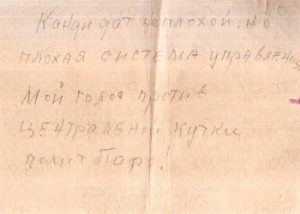 Кандидат неплохой, но
плохая система управления
Мой голос против
центральной кучки
политбюро!